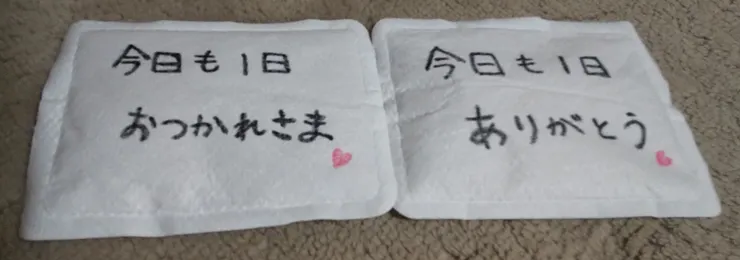 今日も1日
おつかれさま
今日も1日
ありがとう